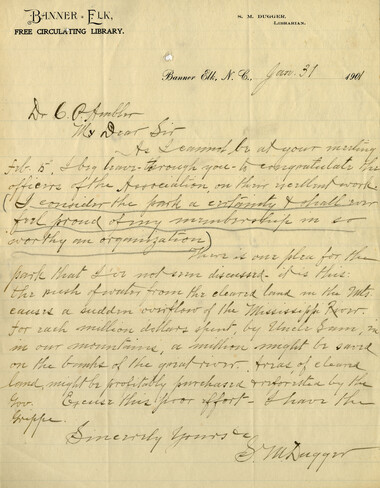 BANNER ELK,
FREE CIRCULATING LIBRARY.
S. M. DUGGER,
LIBRARIAN.
Banner Elk, N. C., Jan. 31 1901
Dr C. P. Ambler
My Dear Sir
As I cannot be at your meeting
Feb. 5, I beg leave through you to congratulate the
officers of the Association on their excellent work
(I consider the park a certainty & shall ever
feel proud of my membership in so
worthy an organization)
There is one plea for the
park that I've not seen discussed. it is this:
the rush of water from the cleared land in the Mts.
causes a sudden overflow of the Mississippi River.
For each million dollars spent, by Uncle Sam,
in our mountains, a million might be saved
on the banks of the great river. Areas of cleared
land might be profitably purchased & reforested by the
Gov. Excuse this poor effort - I have the
Grippe.
Sincerely Yours &c
S. M. Dugger